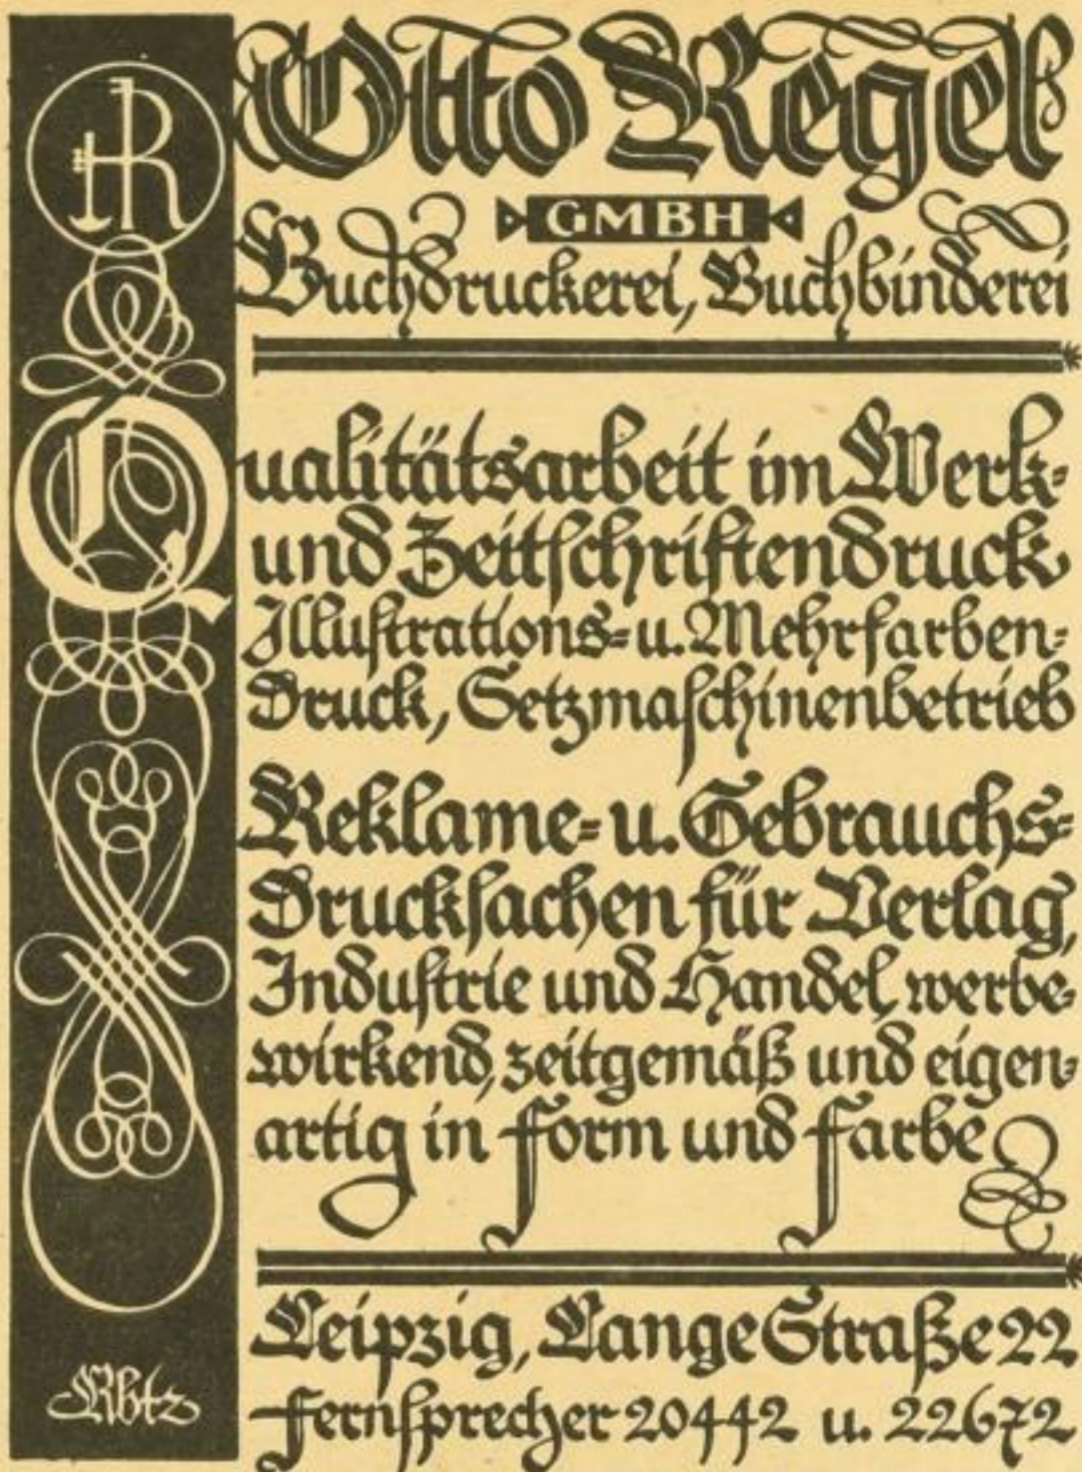 Otto Regel
GMBH
Buchdruckerei, Buchbinderei
Qualitätsarbeit im Werk-
und Zeitschriftendruck
Illustrations- u. Mehrfarben-
druck, Setzmaschinenbetrieb
Reklame- u. Gebrauchs-
Drucksachen für Verlag,
Industrie und Handel, werbe-
wirkend, zeitgemäß und eigen-
artig in Form und Farbe
Leipzig, Lange Straße 22
Fernsprecher 20442 u. 22672